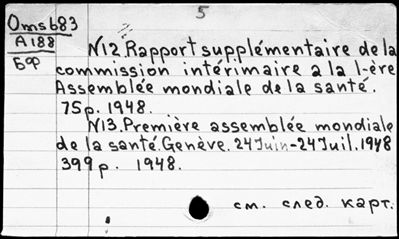 5
Omsb83
A188
БФ
N12. Rapport supplémentaire de la
commission intérimaire a la I-ère
Assemblée mondiale de la santé.
75p. 1948.
N13. Première assemblée mondiale
de la santé. Genève. 24 Juin-24 Juil. 1948
399p. 1948.
см. след. карт.